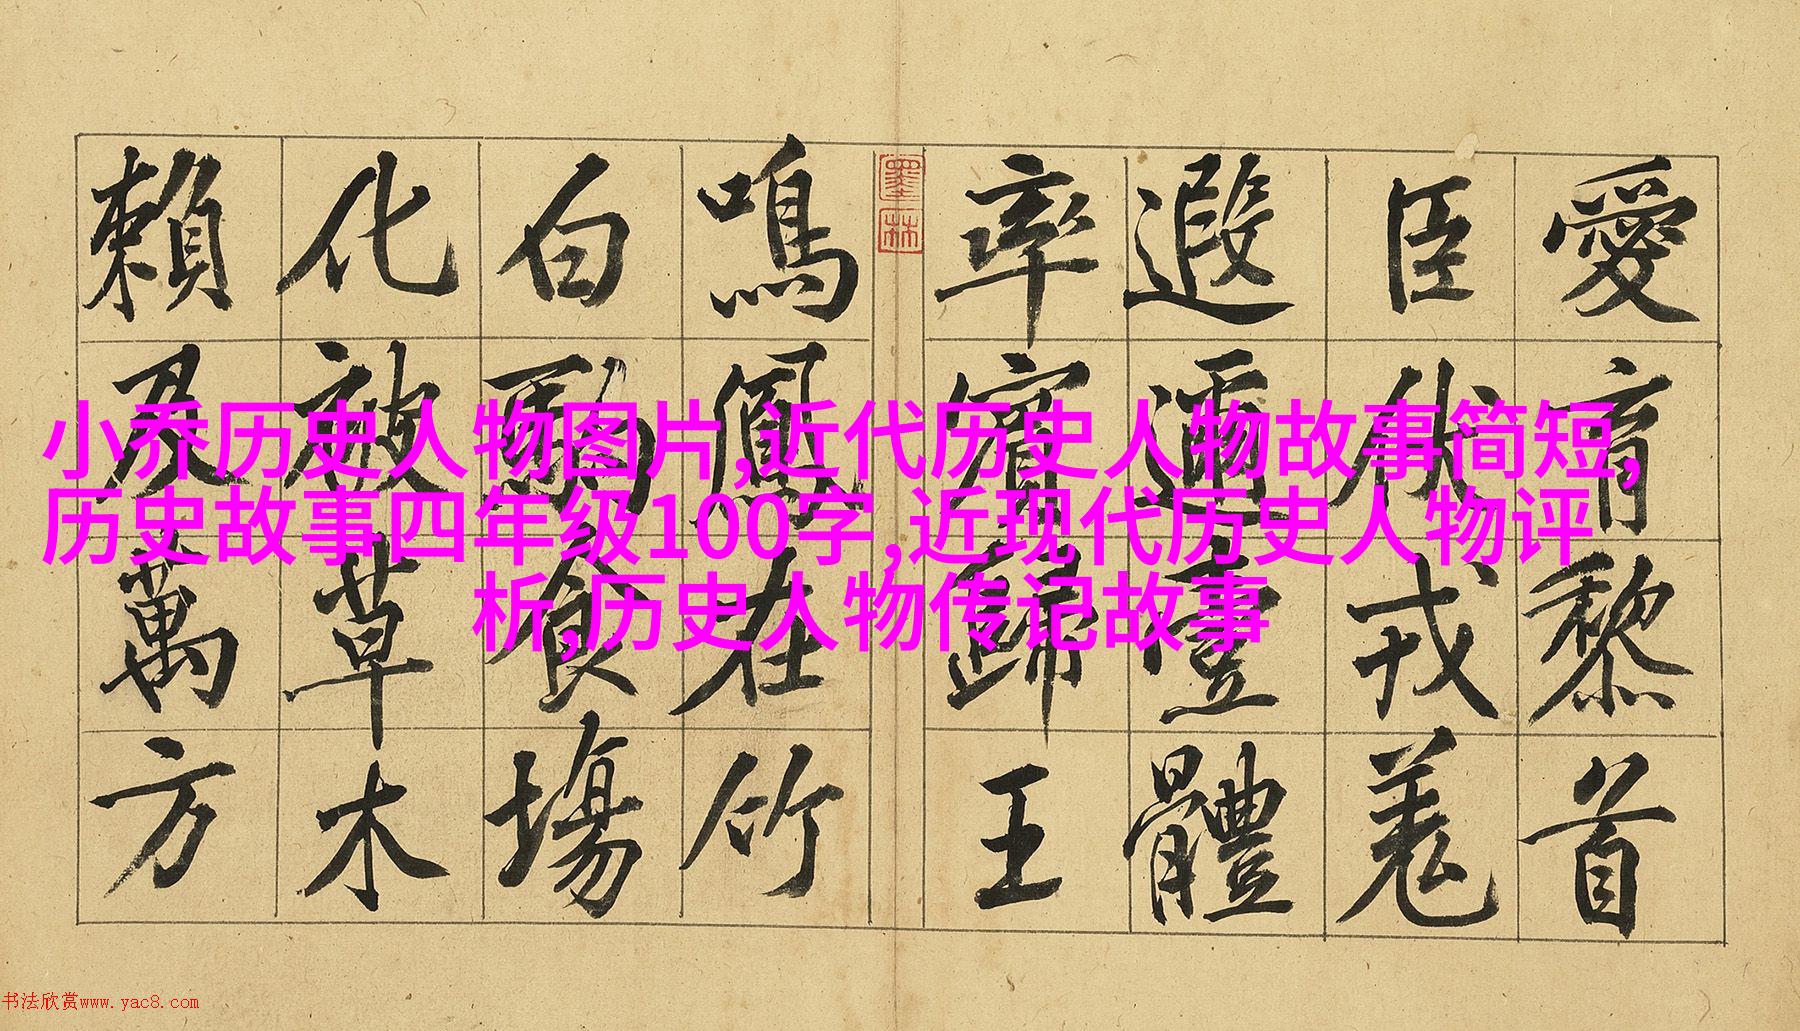 愛育黎首
臣伏戎羌
遐邇壹體
率賓歸王
墨林
鳴鳳在竹
白駒食場
化被草木
賴及萬方
小乔历史人物图片,近代历史人物故事简短,
历史故事四年级100字,近现代历史人物评
析,历史人物传记故事
书法欣赏www.yac8.com